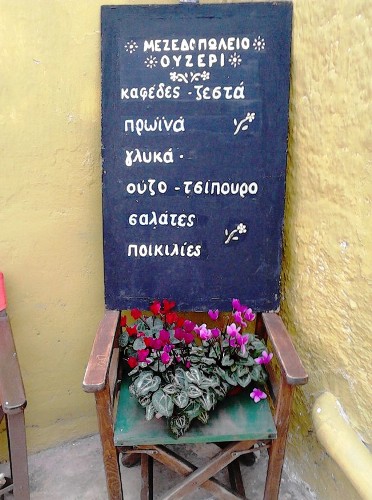 ΜΕΖΕΔΟΠΩΛΕΙΟ
ΟΥΖΕΡΙ
καφέδες - ζεστά
πρωϊνά
γλυκά.
ούζο - τσίπουρο
σαλάτες
ποικιλίες